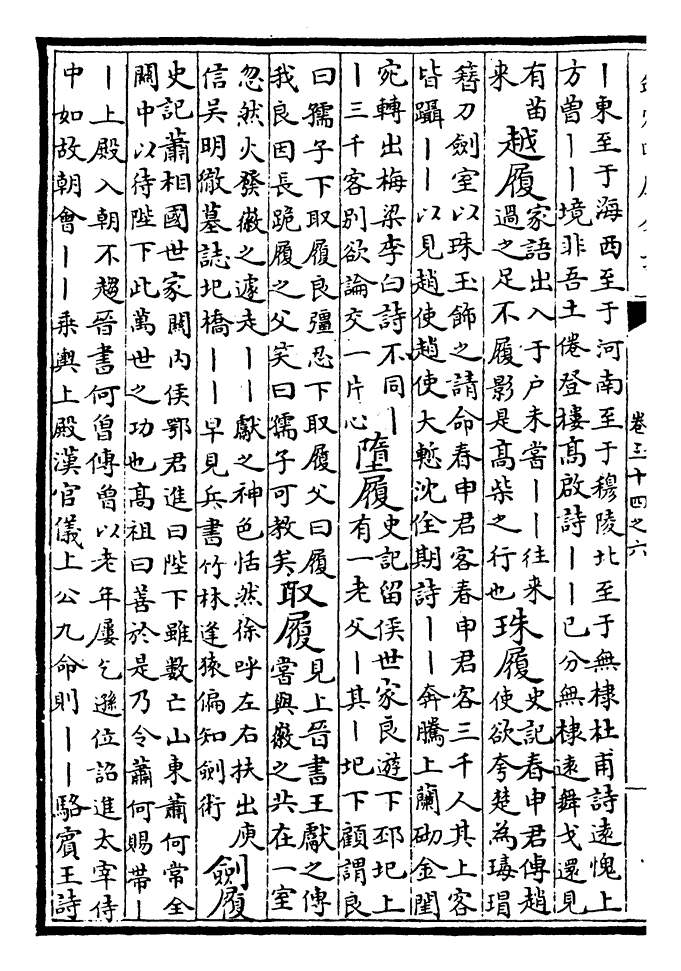 卷三十四之六
丨東至于海西至于河南至于穆陵北至于無棣杜甫詩遠愧上
方曽丨丨境非吾土倦登樓髙啟詩丨丨已分無棣遠舞戈還見
有苗
來
越履
家語出入于户未嘗丨丨往來
過之足不履影是髙柴之行也
珠履
史記春申君傳趙
使欲夸楚為瑇瑁
簮刀劍室以珠玉飾之請命春申君客春申君客三千人其上客
皆躡丨丨以見趙使趙使大慙沈佺期詩丨丨奔騰上蘭砌金閨
宛轉出梅梁李白詩不同丨
丨三千客别欲論交一片心
墮履
史記留侯世家良遊下邳圯上
有一老父丨其丨圯下顧謂良
曰孺子下取履良彊忍下取履父曰履
我良因長跪履之父笑曰孺子可教矣
取履
見上晉書王獻之傳
嘗與徽之共在一室
忽然火發徽之遽走丨丨獻之神色恬然徐呼左右扶出庾
信吴明徹墓誌圯橋丨丨早見兵書竹林逢猿偏知劍術
劍履
史記蕭相國世家關内侯鄂君進曰陛下雖數亡山東蕭何常全
關中以待陛下此萬世之功也髙祖曰善於是乃令蕭何賜帶丨
丨上殿入朝不趨晉書何曽傳曾以老年屢乞遜位詔進太宰侍
中如故朝會丨丨乗輿上殿漢官儀上公九命則丨丨駱賓王詩